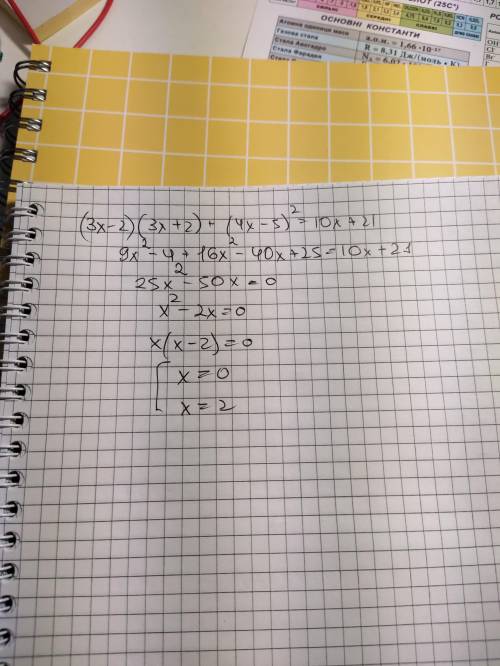 ОСНОВНІ КОНСТАНТИ
Атомна одиниця маси
а.о.м. = 1,66 ·10⁻²⁷
Газова стала
R = 8,31 Дж/(моль • К)
Стала Авогадро
Стала Фарадея
(3x-2)(3x+2) + (4x-5)² = 10x+21
9x² - 4 + 16x² - 40x + 25 = 10x + 21
25x² - 50x = 0
x² - 2x = 0
x(x-2) = 0
[ x = 0
x = 2